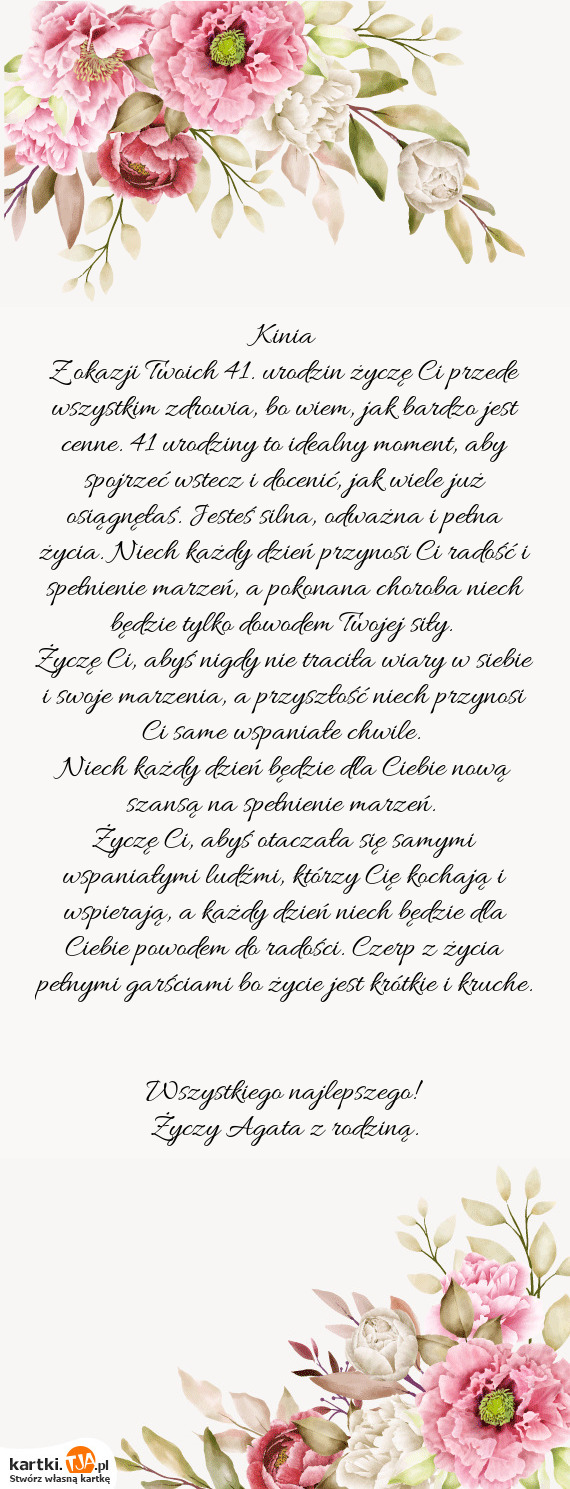 Kinia
Z okazji Twoich 41. urodzin życzę Ci przede
wszystkim zdrowia, bo wiem, jak bardzo jest
cenne. 41 urodziny to idealny moment, aby
spojrzeć wstecz i docenić, jak wiele już
osiągnęłaś. Jesteś silna, odważna i pełna
życia. Niech każdy dzień przynosi Ci radość i
spełnienie marzeń, a pokonana choroba niech
będzie tylko dowodem Twojej siły.
Życzę Ci, abyś nigdy nie traciła wiary w siebie
i swoje marzenia, a przyszłość niech przynosi
Ci same wspaniałe chwile.
Niech każdy dzień będzie dla Ciebie nową
szansą na spełnienie marzeń.
Życzę Ci, abyś otaczała się samymi
wspaniałymi ludźmi, którzy Cię kochają i
wspierają, a każdy dzień niech będzie dla
Ciebie powodem do radości. Czerp z życia
pełnymi garściami bo życie jest krótkie i kruche.
Wszystkiego najlepszego!
Życzy Agata z rodziną.
kartki.TJA.pl
Stwórz własną kartkę